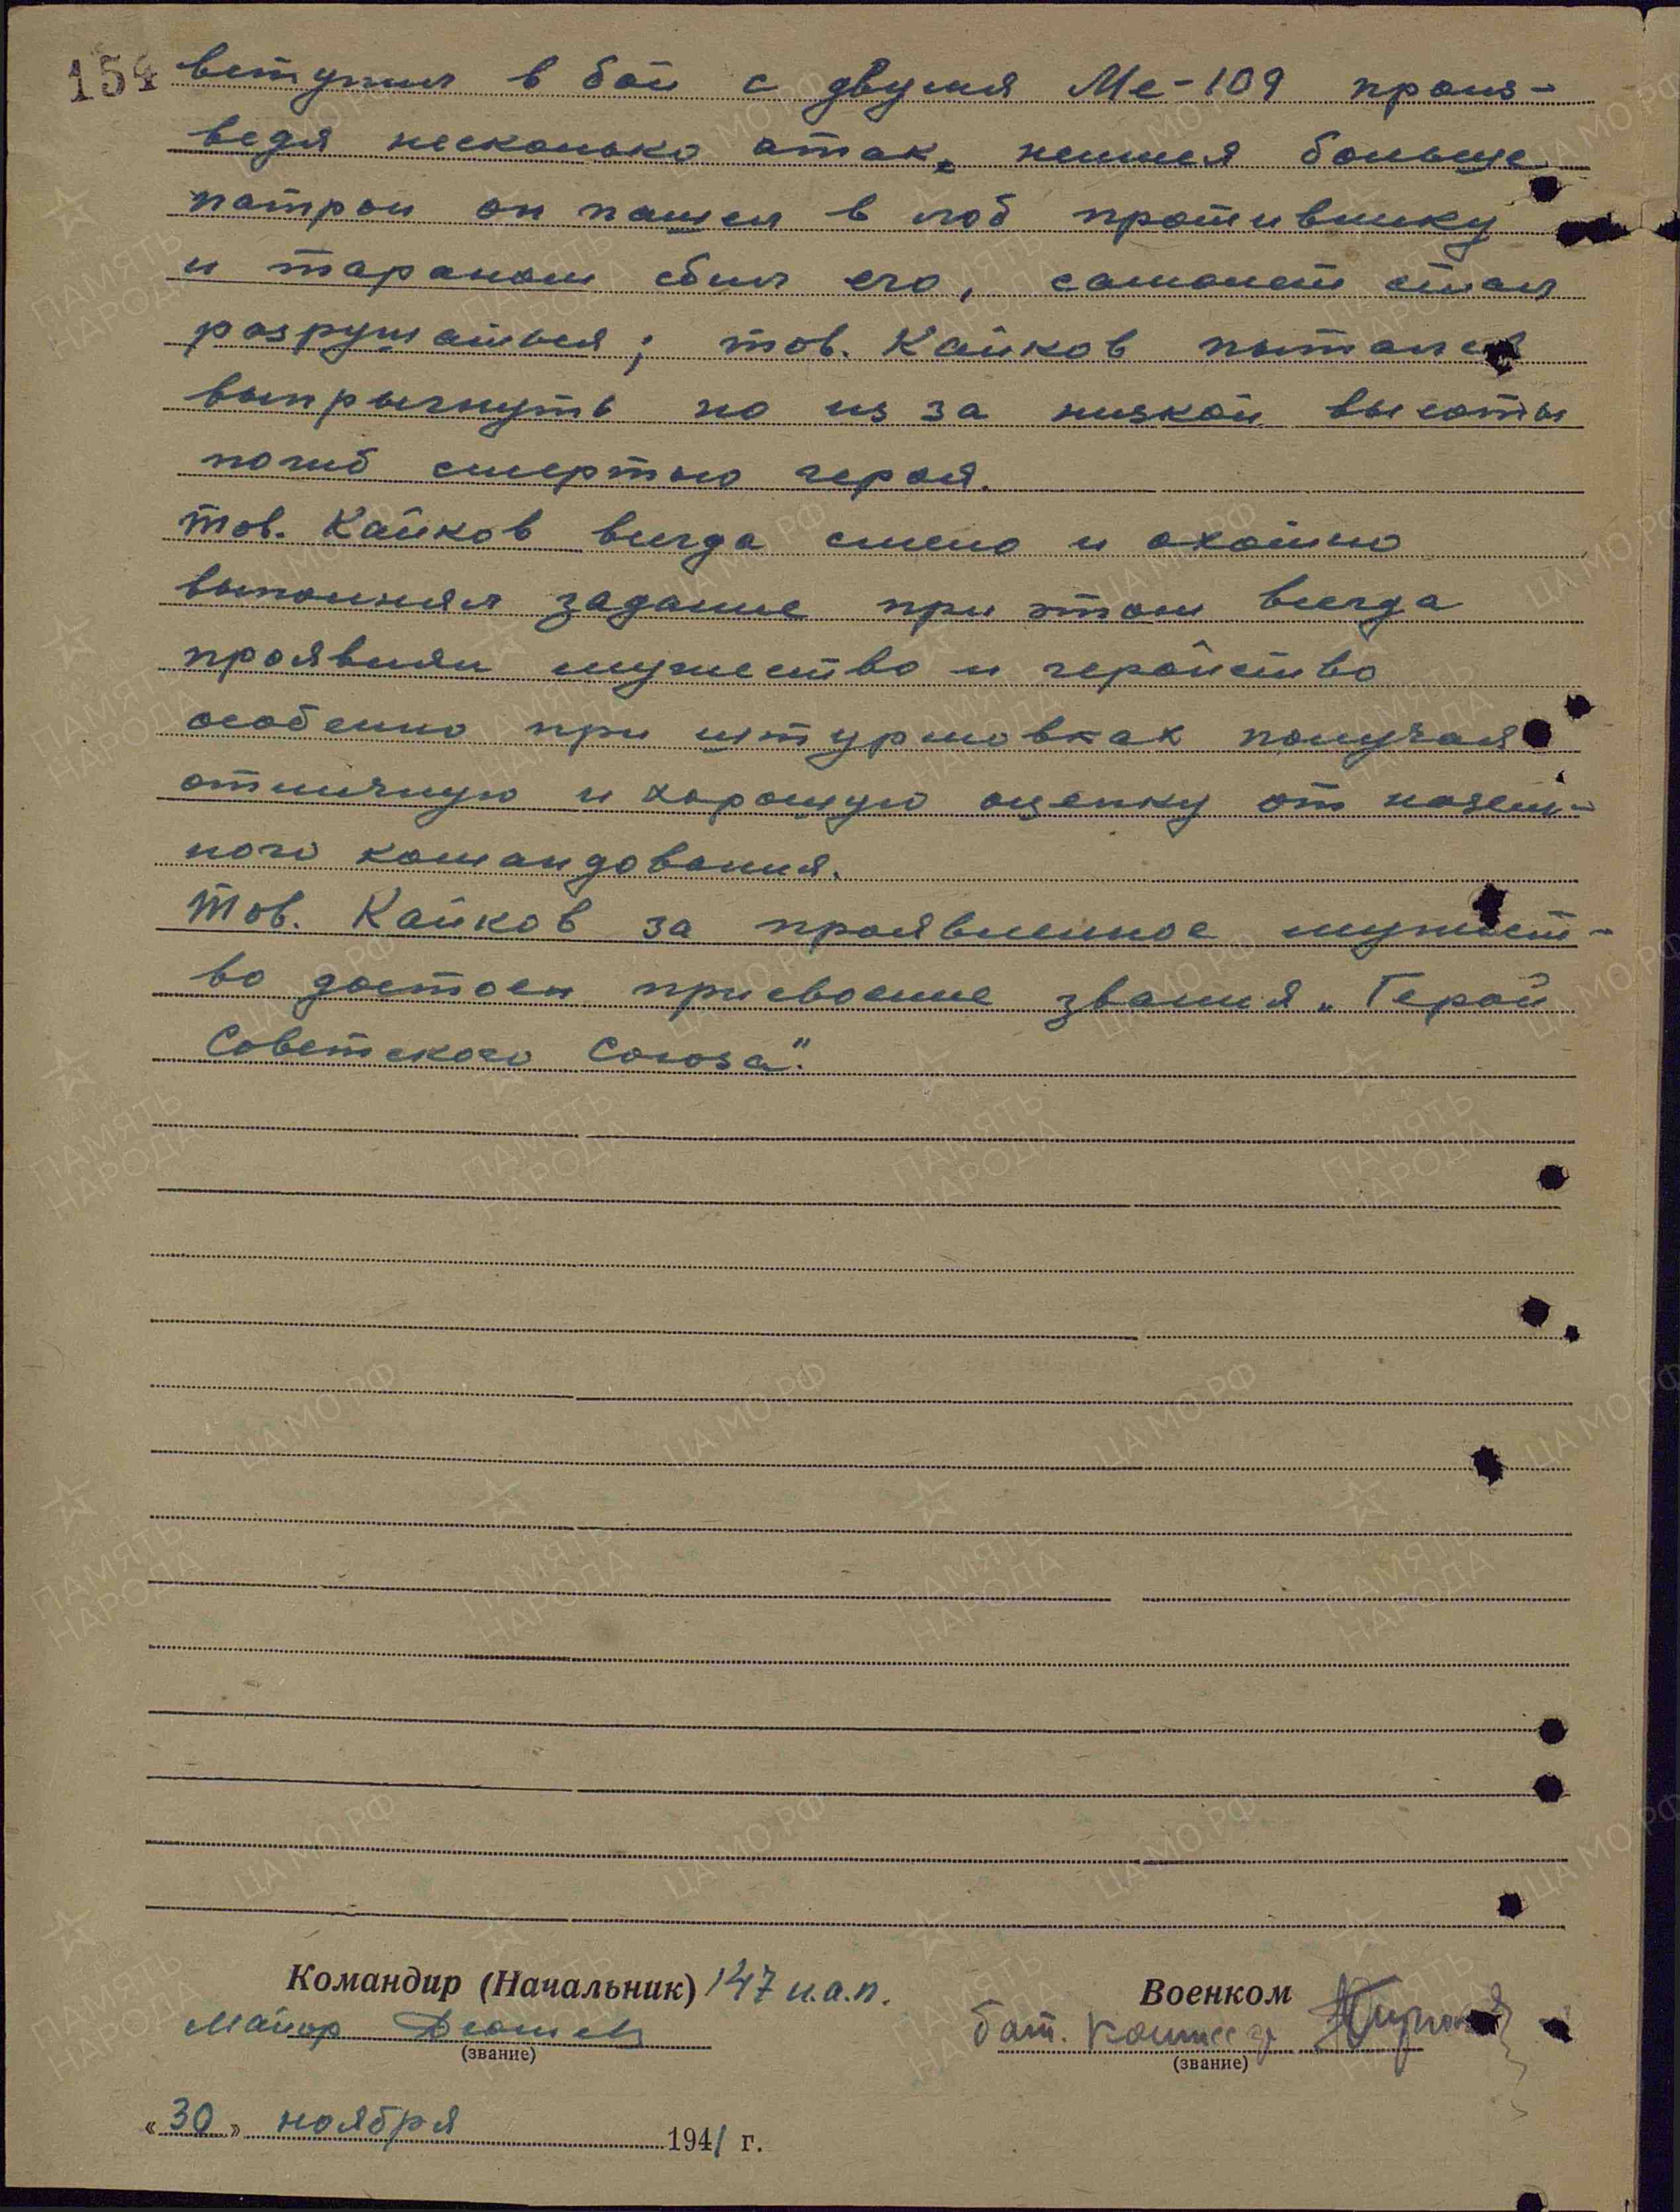 154
вступил в бой с двумя Ме-109 произ-
ведя несколько атак, неимея больше
патрон он пошел в лоб противнику
и тараном сбил его, самолет стал
разрушаться; тов. Кайков пытался
выпрыгнуть но из за низкой высоты
погиб смертью героя.
Тов. Кайков всегда смело и охотно
выполнял задание при этом всегда
проявляя мужество и геройство
особенно при штурмовках получая
отличную и хорошую оценку от назем-
ного командования.
Тов. Кайков за проявленное мужест-
во достоен присвоение звания „Герой
Советского Союза".
Командир (Начальник) 147 и.а.п.
Майор
(звание)
Военком
бат. комиссар
(звание)
«30» ноября 1941 г.
ПАМЯТЬ НАРОДА
ЦАМО.РФ